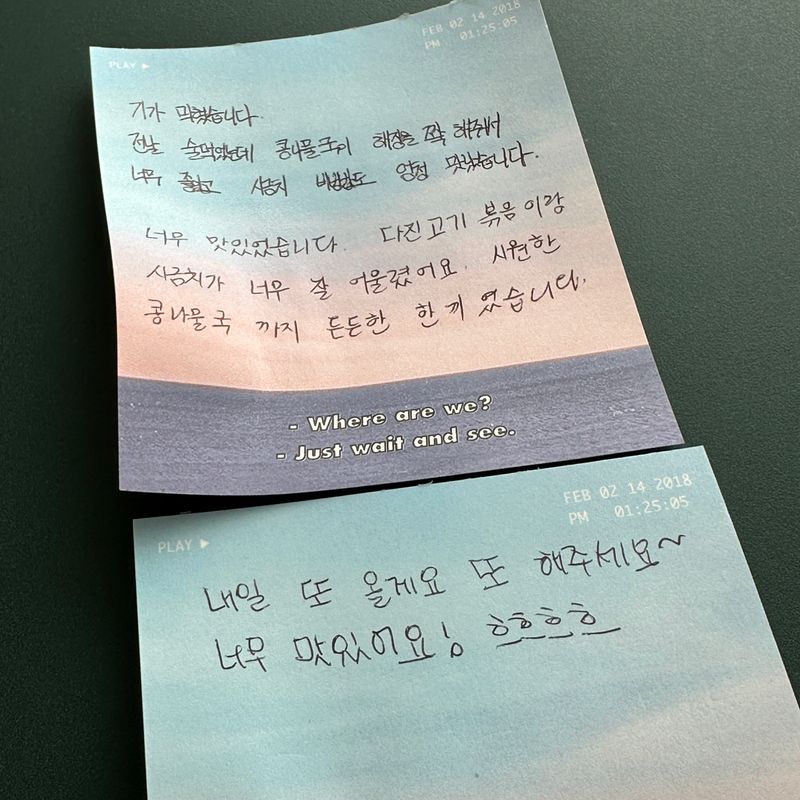 PLAY ▶
FEB 02 14 2018
PM 01:25:05
기가 막혔습니다.
전날 술먹었는데 콩나물국이 해장을 쫙 해주서
너무 좋았고 시금치 비빔밥도 엄청 맛났습니다.
너무 맛있었습니다. 다진고기 볶음이랑
시금치가 너무 잘 어울렸어요. 시원한
콩나물국 까지 든든한 한끼 였습니다.
- Where are we?
- Just wait and see.
PLAY ▶
FEB 02 14 2018
PM 01:25:05
내일 또 올게요 또 해주세요~
너무 맛있어요! ㅎㅎㅎㅎ